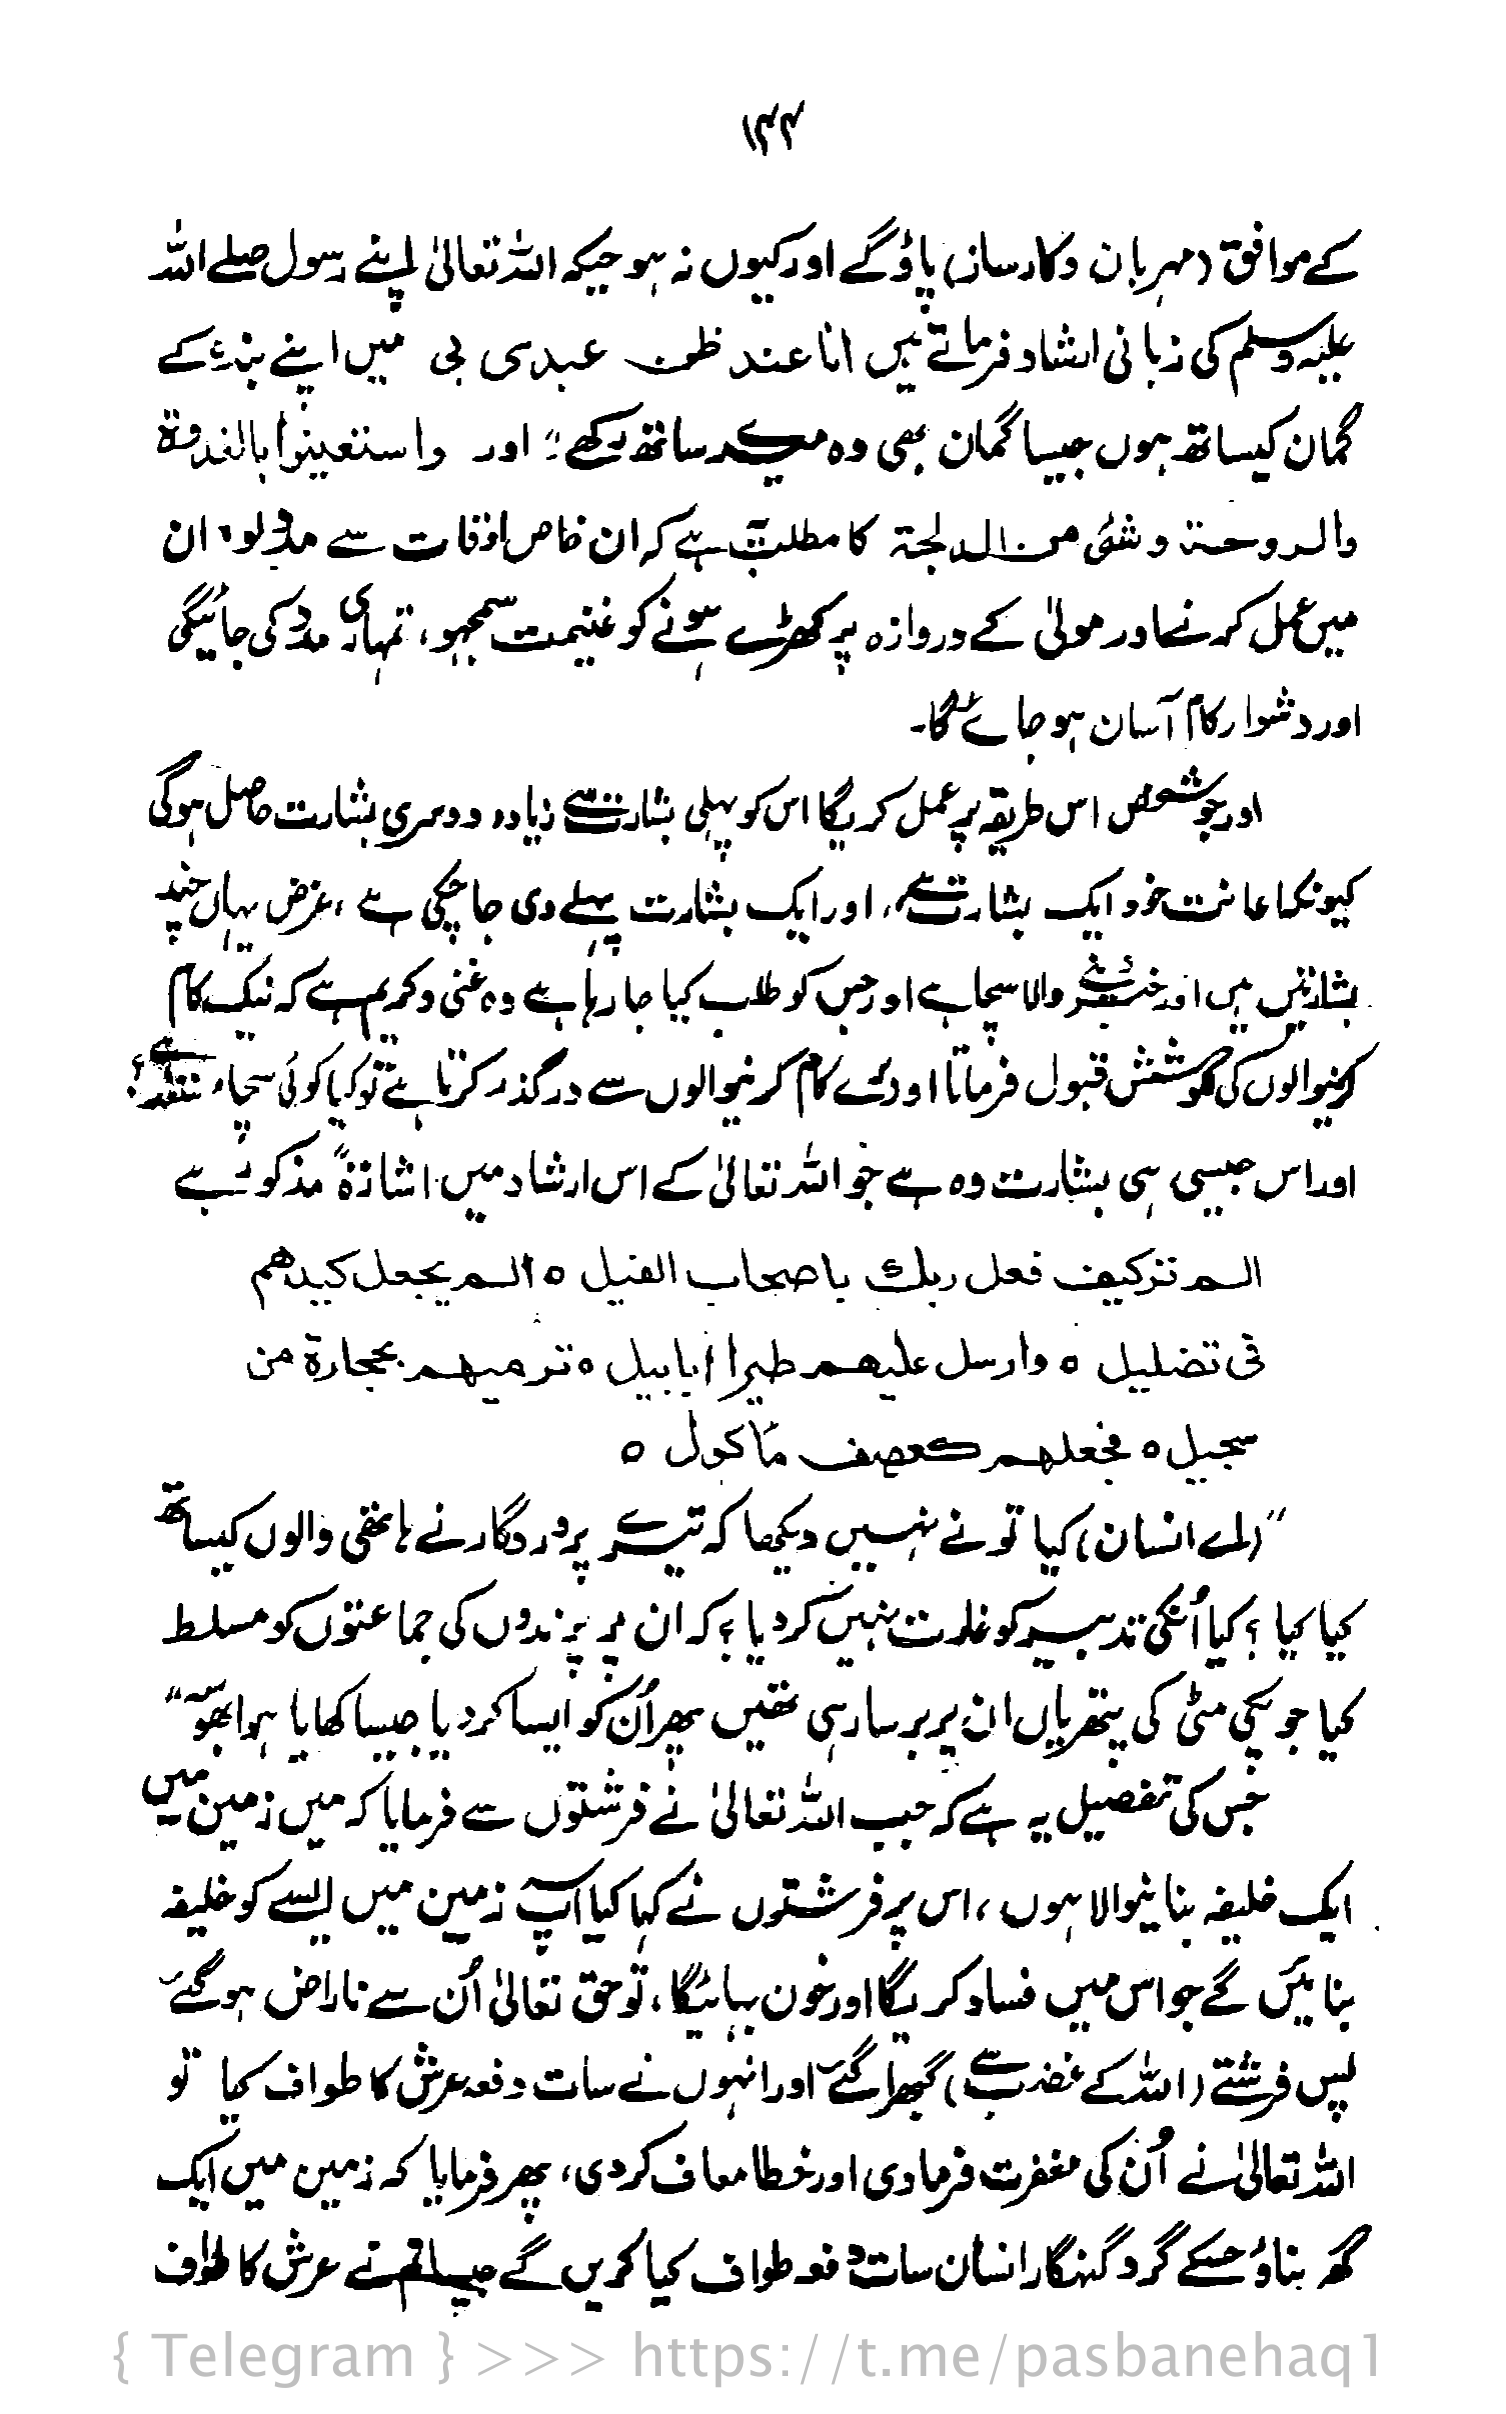 ۱۴۴
کے موافق (مہربان وکارساز) پاؤگے اورکیوں نہ ہو جبکہ اللہ تعالیٰ اپنے رسول صلے اللہ
علیہ وسلم کی زبانی ارشاد فرماتے ہیں انا عند ظن عبدی بی میں اپنے بندے کے
گمان کیساتھ ہوں جیسا گمان بھی وہ میرے ساتھ رکھے" اور واستعینوا بالغدوة
والروحة وشئ من الدلجة کا مطلب یہ ہے کہ ان خاص اوقات سے مدد لو، ان
میں عمل کرنے اور مولیٰ کے دروازہ پر کھڑے ہونے کو غنیمت سمجھو، تمہاری مدد کی جائیگی
اور دشوار کام آسان ہو جائے گا۔
اورجو شخص اس طریقہ پر عمل کریگا اس کو پہلی بشارت سے زیادہ دوسری بشارت حاصل ہوگی
کیونکہ اعانت خود ایک بشارت ہے، اور ایک بشارت پہلے دی جا چکی ہے، غرض یہاں چند
بشارتیں ہیں اور خبر دینے والا سچا ہے اور جس کو طلب کیا جا رہا ہے وہ غنی وکریم ہے کہ نیک کام
کرنیوالوں کی کوشش قبول فرماتا اور برے کام کرنیوالوں سے درگذر کرتا ہے تو کیا کوئی سچا
اور اس جیسی ہی بشارت وہ ہے جو اللہ تعالیٰ کے اس ارشاد میں اشارۃً مذکور ہے
الم تر کیف فعل ربك باصحاب الفیل ٥ الم یجعل کیدهم
فی تضلیل ٥ وارسل علیهم طیرا ابابیل ٥ ترمیهم بحجارة من
سجیل ٥ فجعلهم کعصف ماکول ٥
"(اے انسان) کیا تو نے نہیں دیکھا کہ تیرے پروردگار نے ہاتھی والوں کیساتھ
کیا کیا؟ کیا اُنکی تدبیر کو غارت نہیں کر دیا؟ کہ ان پر پرندوں کی جماعتوں کو مسلط
کیا جو پکی مٹی کی پتھریاں ان پر برسا رہی تھیں پھر اُن کو ایسا کر دیا جیسا کھایا ہوا بھوسہ"
جس کی تفصیل یہ ہے کہ جب اللہ تعالیٰ نے فرشتوں سے فرمایا کہ میں زمین میں
ایک خلیفہ بنانیوالا ہوں، اس پر فرشتوں نے کہا کیا آپ زمین میں ایسے کو خلیفہ
بنائیں گے جو اس میں فساد کریگا اور خون بہائیگا، تو حق تعالیٰ اُن سے ناراض ہوگئے
پس فرشتے (اللہ کے غضب سے) گھبرا گئے اور انہوں نے سات دفعہ عرش کا طواف کیا تو
اللہ تعالیٰ نے اُن کی مغفرت فرمادی اور خطا معاف کر دی، پھر فرمایا کہ زمین میں ایک
گھر بناؤ جسکے گرد گنہگار انسان سات دفعہ طواف کیا کریں گے جیسا تم نے عرش کا طواف
{ Telegram } >>> https://t.me/pasbanehaq1